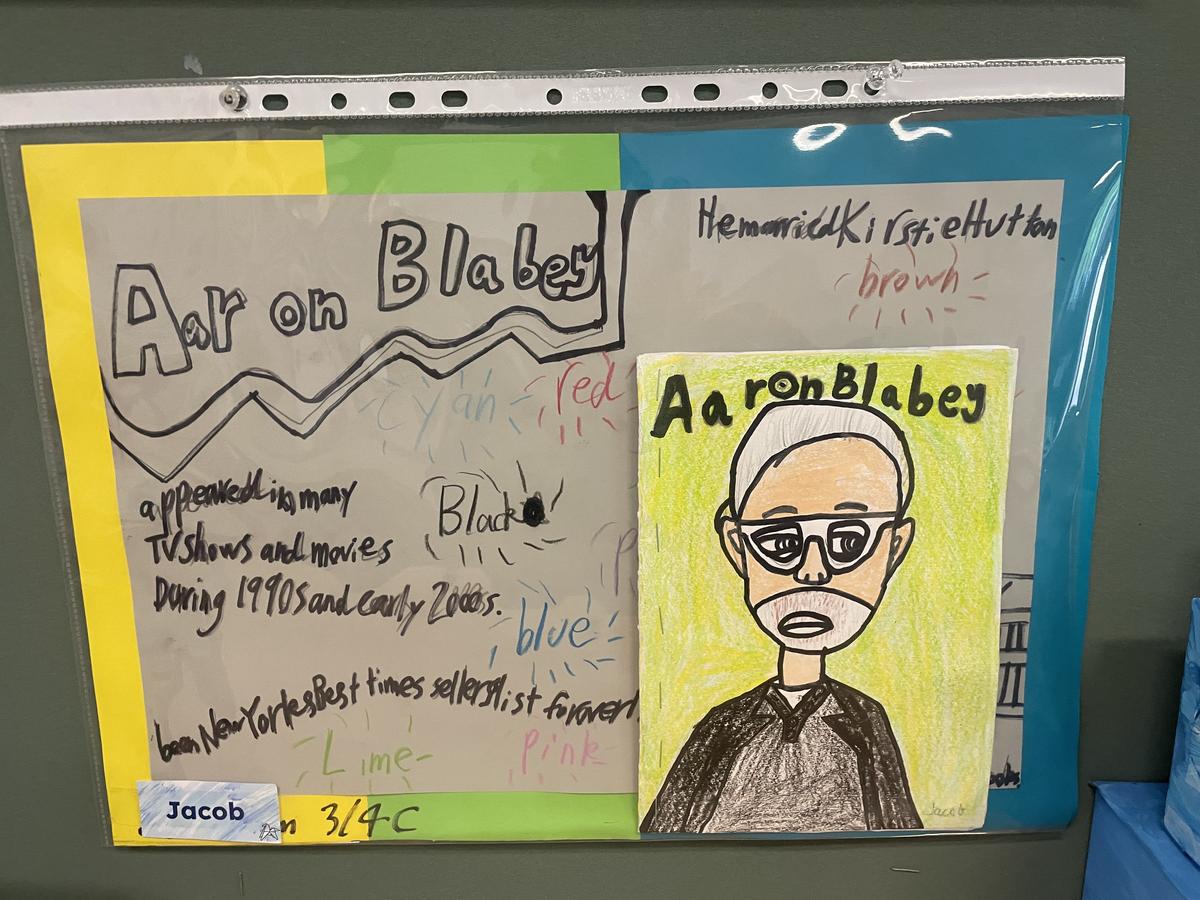 Aaron Blabey
He married Kirstie Hutton
brown
Cyan
red
Aaron Blabey
appeared in many
TV shows and movies
During 1990s and early 2000s.
Black
blue
been New Yorkes Best times sellers list for over
Lime
Pink
Jacob
3/4C
Jacob